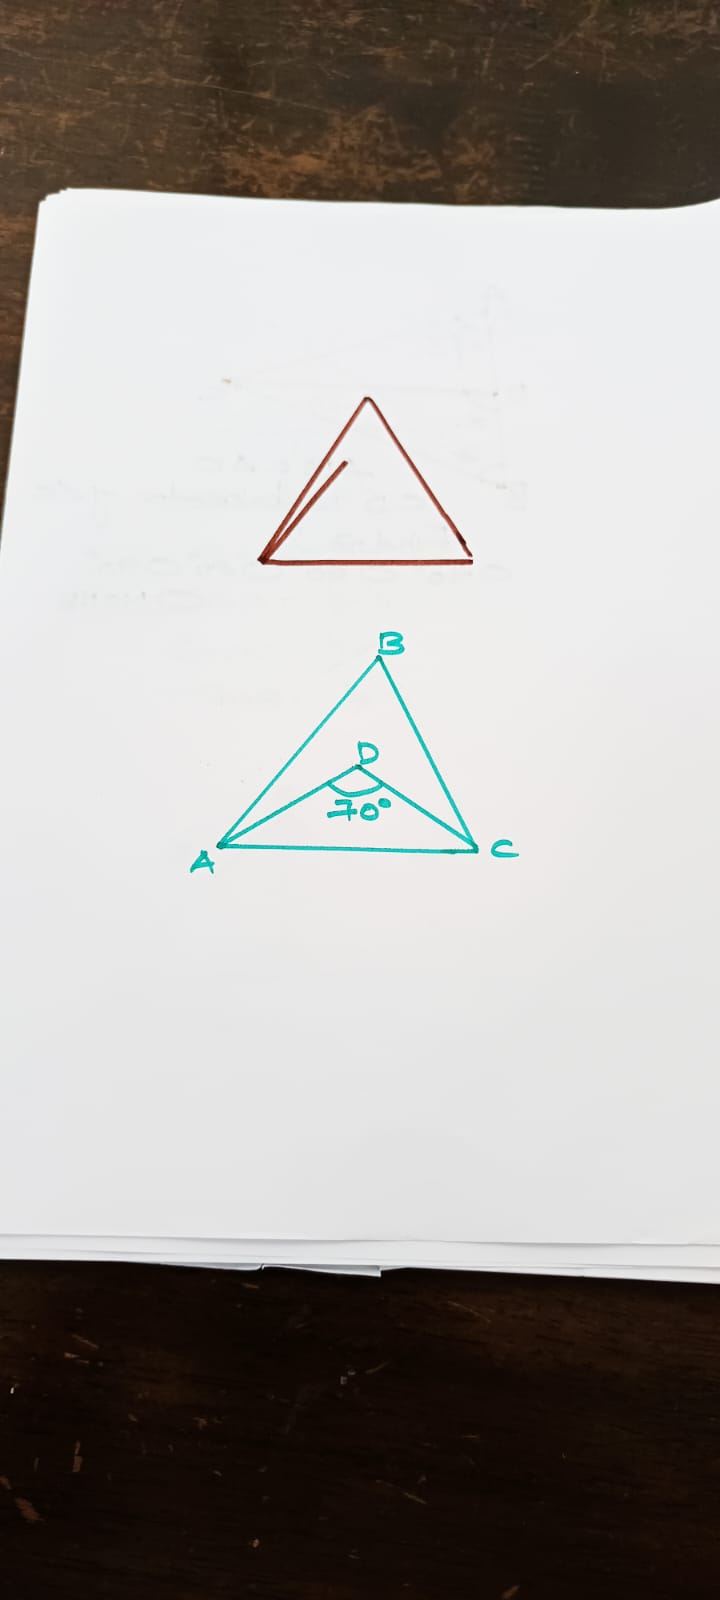 B
D
70°
A
C